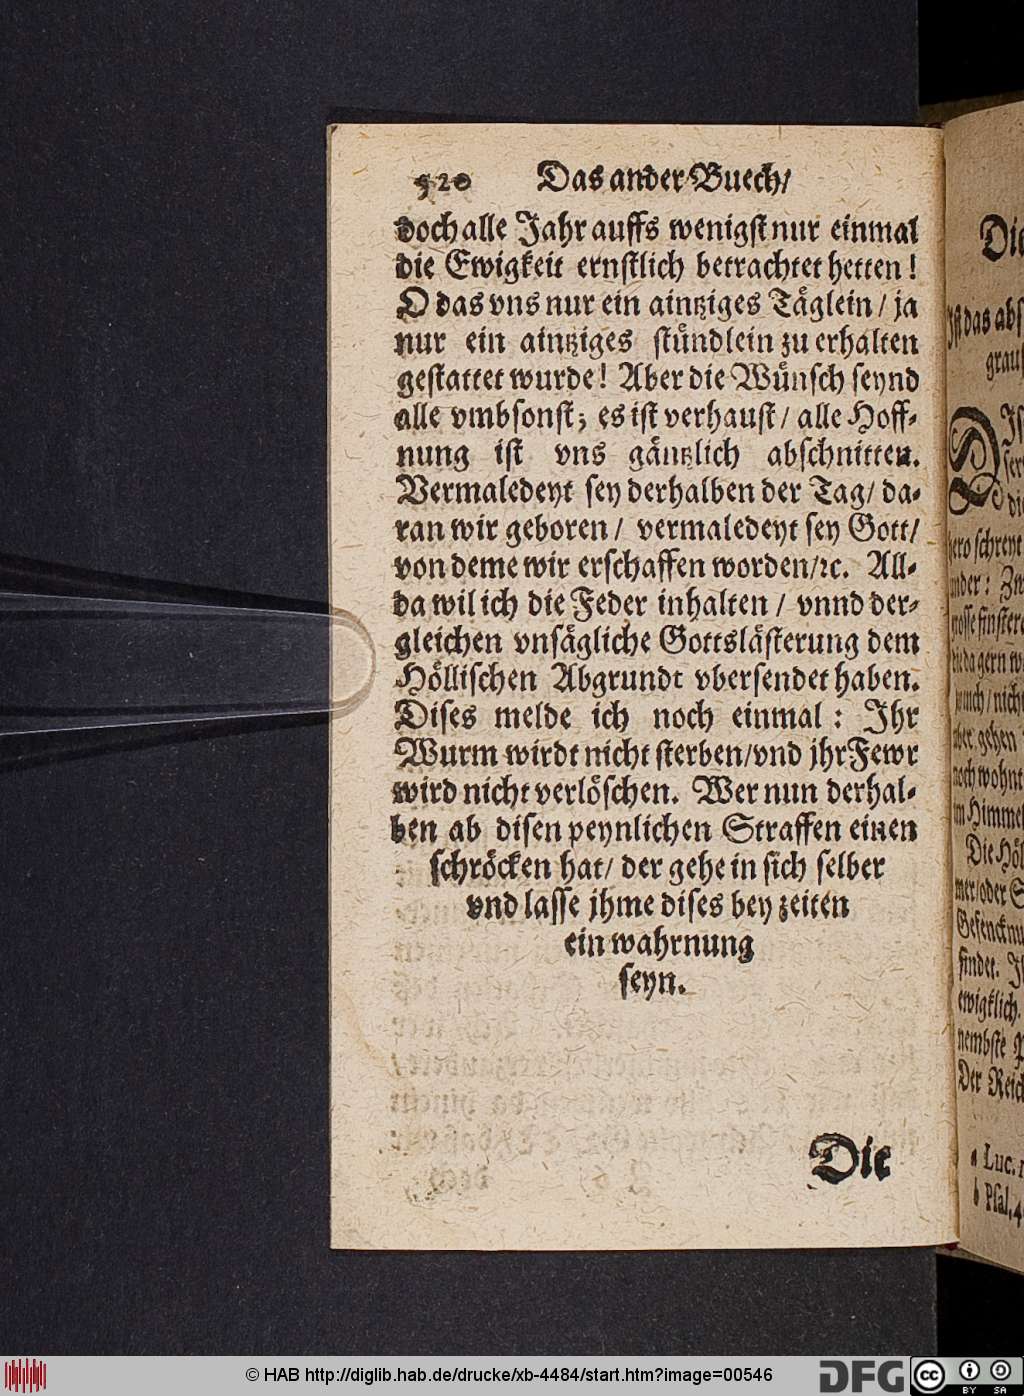 520 Das ander Buech/
doch alle Jahr auffs wenigst nur einmal
die Ewigkeit ernstlich betrachtet hetten!
O das vns nur ein aintziges Täglein / ja
nur ein aintziges stündlein zu erhalten
gestattet wurde! Aber die Wünsch seynd
alle vmbsonst; es ist verhaust / alle Hoff⸗
nung ist vns gäntzlich abschnitten.
Vermaledeyt sey derhalben der Tag / da⸗
ran wir geboren / vermaledeyt sey Gott /
von deme wir erschaffen worden /ꝛc. All⸗
da wil ich die Feder inhalten / vnnd der⸗
gleichen vnsägliche Gottslästerung dem
Höllischen Abgrundt vbersendet haben.
Dises melde ich noch einmal : Ihr
Wurm wirdt nicht sterben/vnd jhr Fewr
wird nicht verlöschen. Wer nun derhal⸗
ben ab disen peynlichen Straffen einen
schröcken hat/ der gehe in sich selber
vnd lasse jhme dises bey zeiten
ein wahrnung
seyn.
Die
Die
Ist das abs
grau
hero schreyt
ander: Zw
grosse finster
die da gern w
nicht
aber gehen
noch wohnt
im Himmel
Die Höl
mer/oder S
Gefencknu
findet. I
ewigklich.
nembste P
Der Reich
a Luc. 1
b Psal. 4
© HAB http://diglib.hab.de/drucke/xb-4484/start.htm?image=00546
DFG
cc BY SA